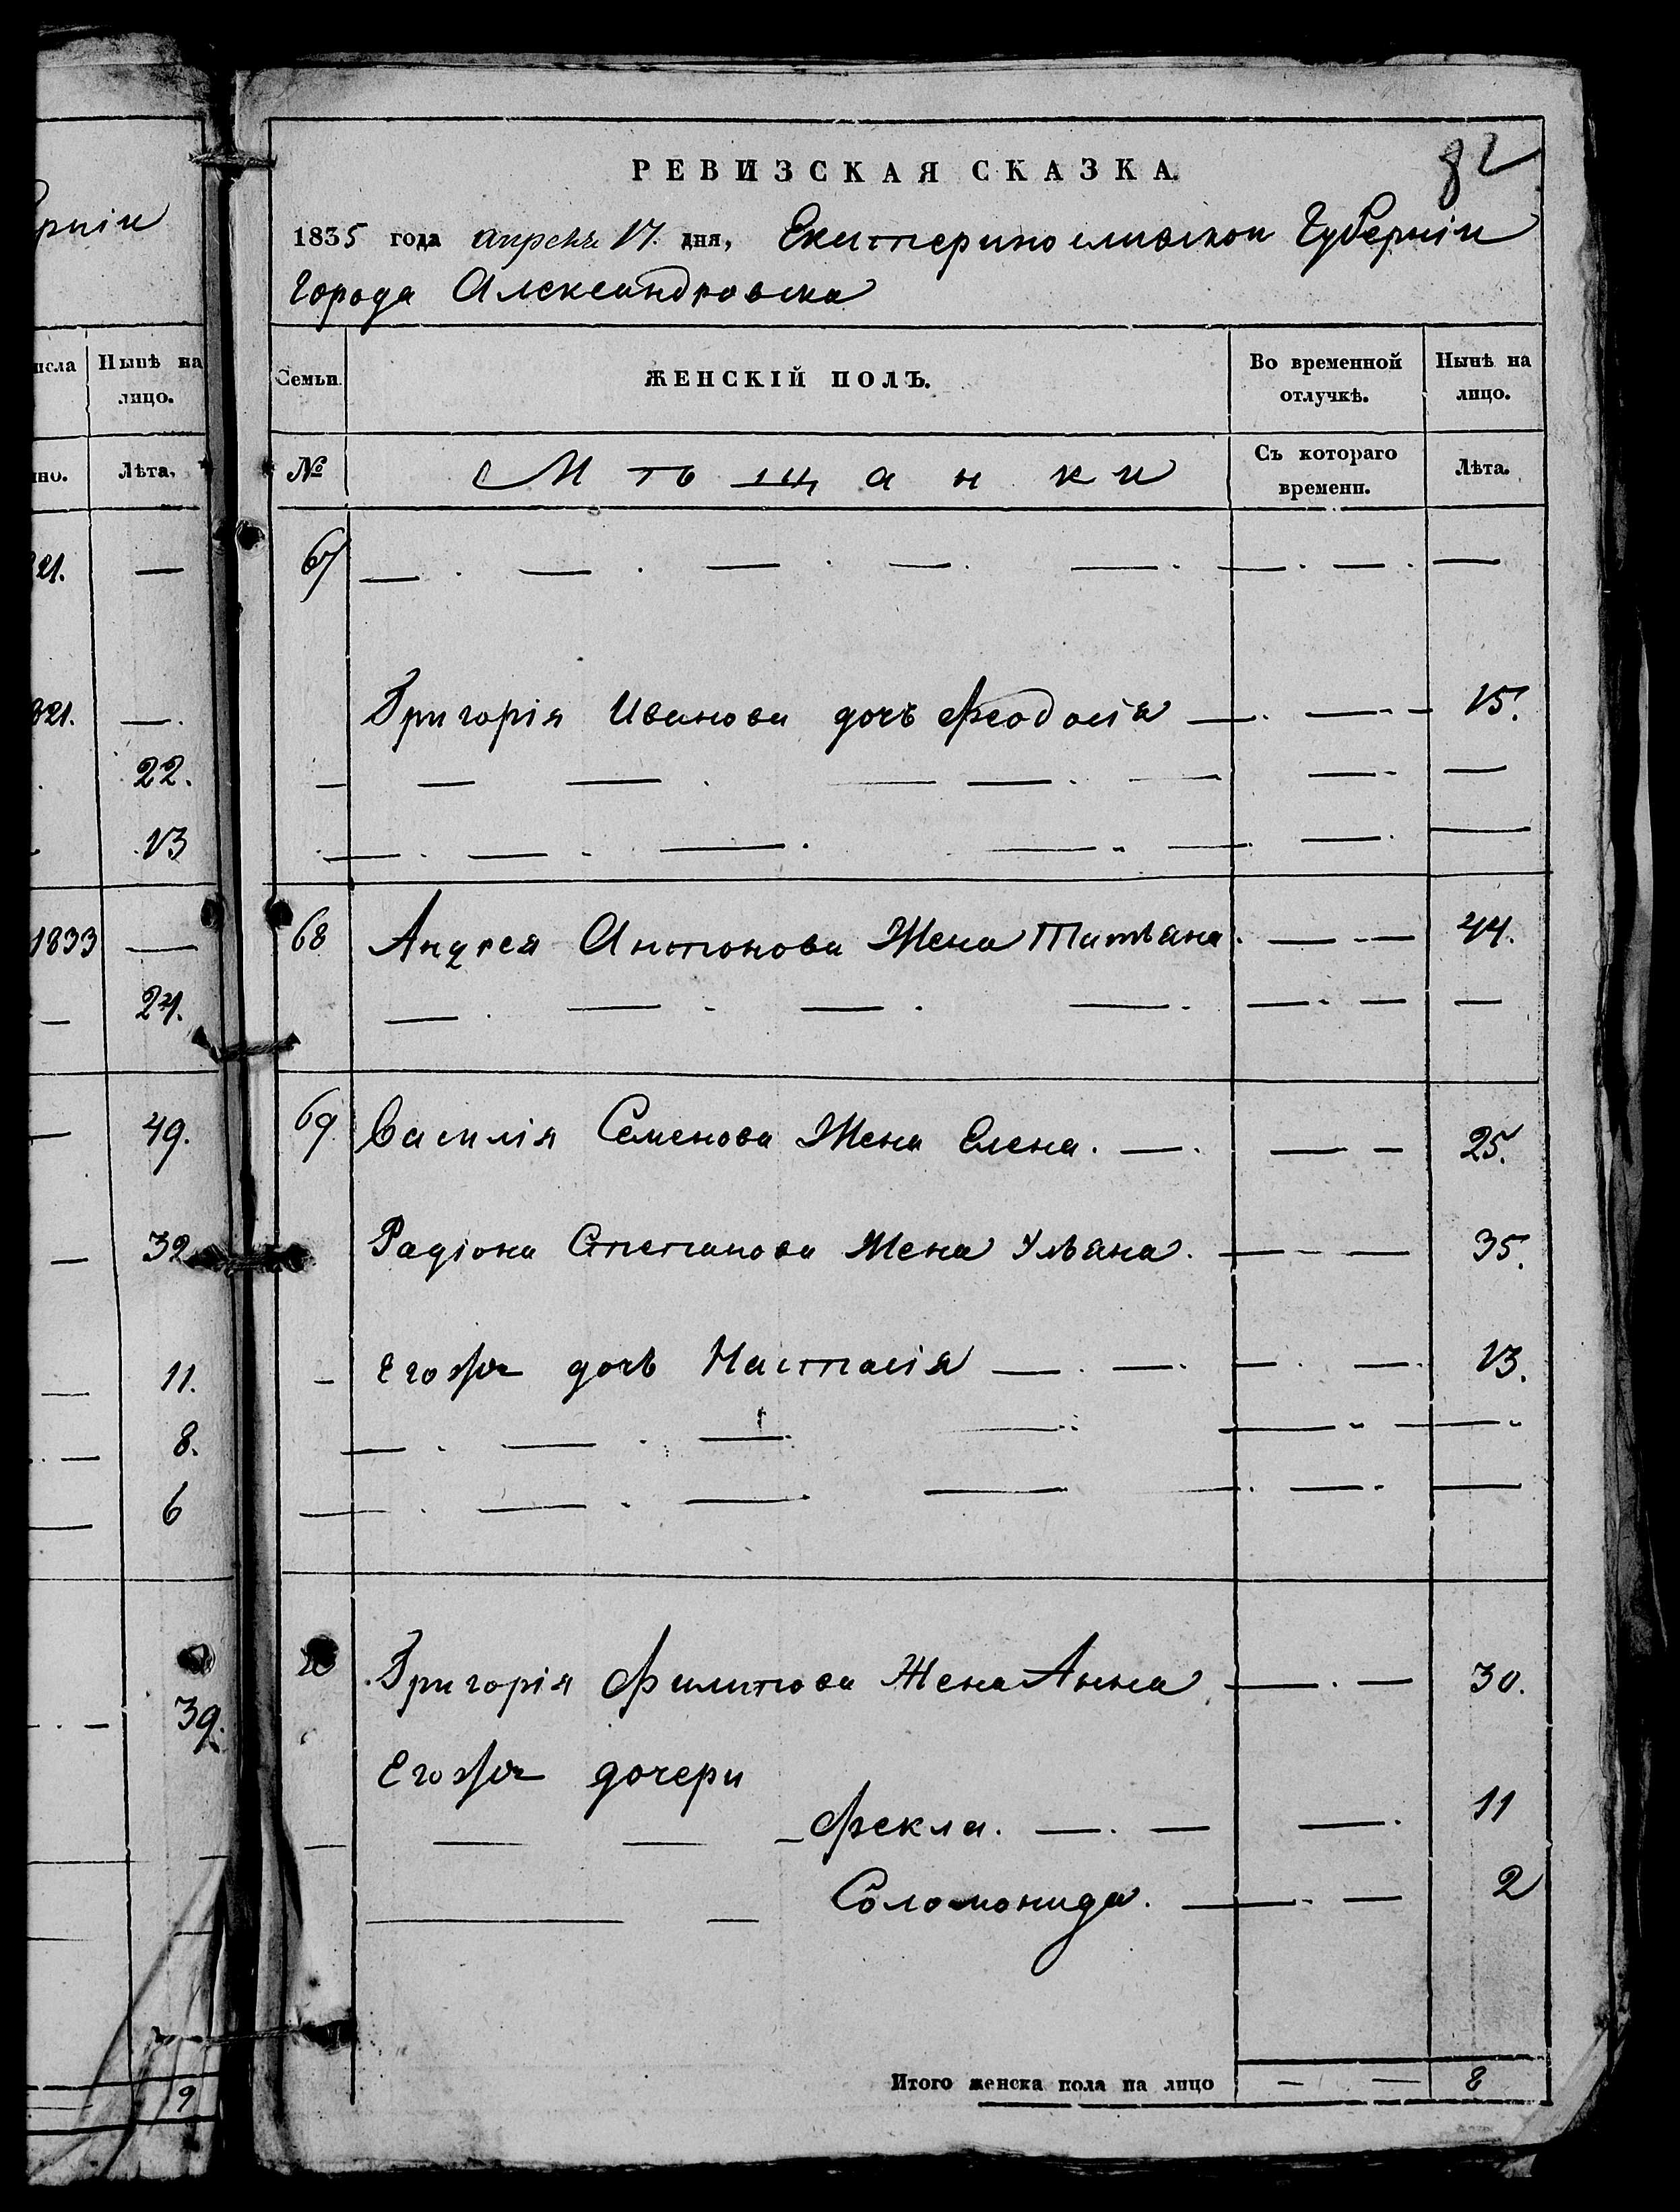 рніи
исла Нынѣ на
лицо.
но. Лѣта.
21. —
321. —
22.
13
1833 —
24.
— 49.
— 32
— 11.
— 8.
— 6
— 39.
9
82
РЕВИЗСКАЯ СКАЗКА
1835 года апреля 17. дня, Екатеринославской Губерніи
Города Александровска
Семьи. ЖЕНСКІЙ ПОЛЪ. Во временной отлучкѣ. Нынѣ на лицо.
№ Мѣщанки Съ котораго времени. Лѣта.
67 — — — — — — — —
Григорія Иванова дочь Феодосія — — 15.
— — — — — — — —
— — — — — — — —
68 Андрея Антонова Жена Татьяна. — — 44.
— — — — — — —
69 Василія Семенова Жена Елена. — — — 25.
Радіона Степанова Жена Ульяна. — — 35.
— Егожъ дочь Настасія — — — — 13.
— — — — — — —
— — — — — — —
Григорія Филипова Жена Анна — — 30.
Егожъ дочери
— — — Фекла. — — — 11
— — Соломонида. — — 2
Итого женска пола на лицо — — 8